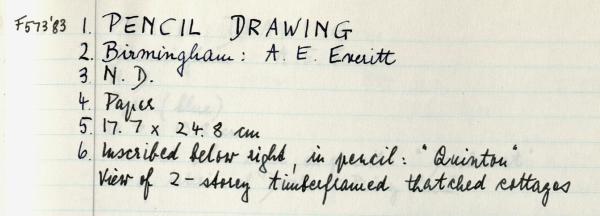 F573'83 1. PENCIL DRAWING
2. Birmingham: A. E. Everitt
3. N. D.
4. Paper
5. 17.7 x 24.8 cm
6. Inscribed below right, in pencil: "Quinton"
View of 2-storey timberframed thatched cottages